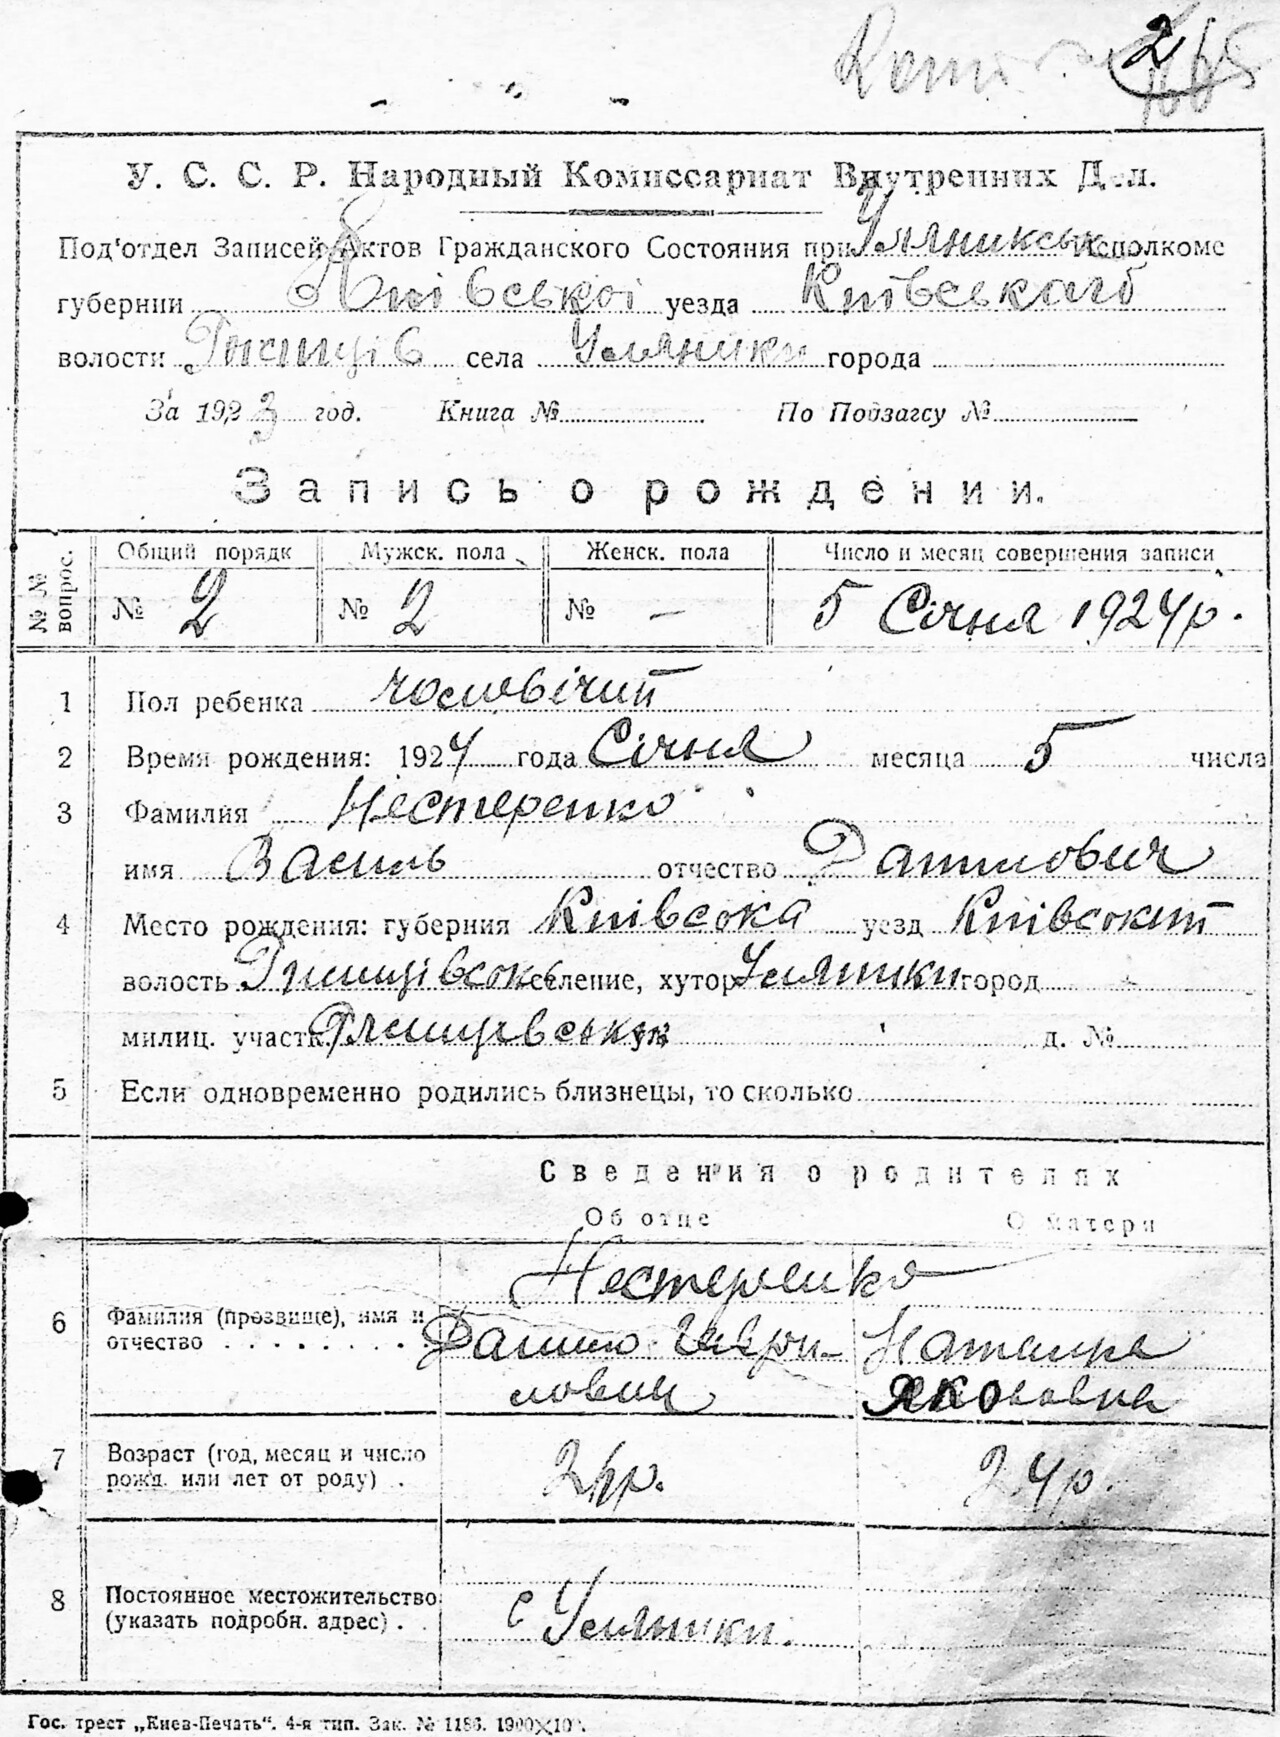 2
У. С. С. Р. Народный Комиссариат Внутренних Дел.
Под'отдел Записей Актов Гражданского Состояния при Уляникськ Исполкоме
губернии Київської уезда Київського
волости села Уляники города
За 1923 год. Книга № По Подзагсу №
Запись о рождении.
№ № вопрос. Общий порядк Мужск. пола Женск. пола Число и месяц совершения записи
№ 2 № 2 № — 5 Січня 1924 р.
1 Пол ребенка чоловічий
2 Время рождения: 1924 года Січня месяца 5 числа
3 Фамилия Нестеренко
имя Василь отчество Данилович
4 Место рождения: губерния Київська уезд Київський
волость селение, хутор Уляники город
милиц. участк. д. №
5 Если одновременно родились близнецы, то сколько
Сведения о родителях
Об отце О матери
Нестеренко
6 Фамилия (прозвище), имя и Данило Гаври- Наталка
отчество . . . . . . . . лович Якововна
7 Возраст (год, месяц и число
рожд. или лет от роду) . 24 р. 24 р.
8 Постоянное местожительство
(указать подробн. адрес) . . с Уляники.
Гос. трест „Киев-Печать“. 4-я тип. Зак. № 1186. 1900×10